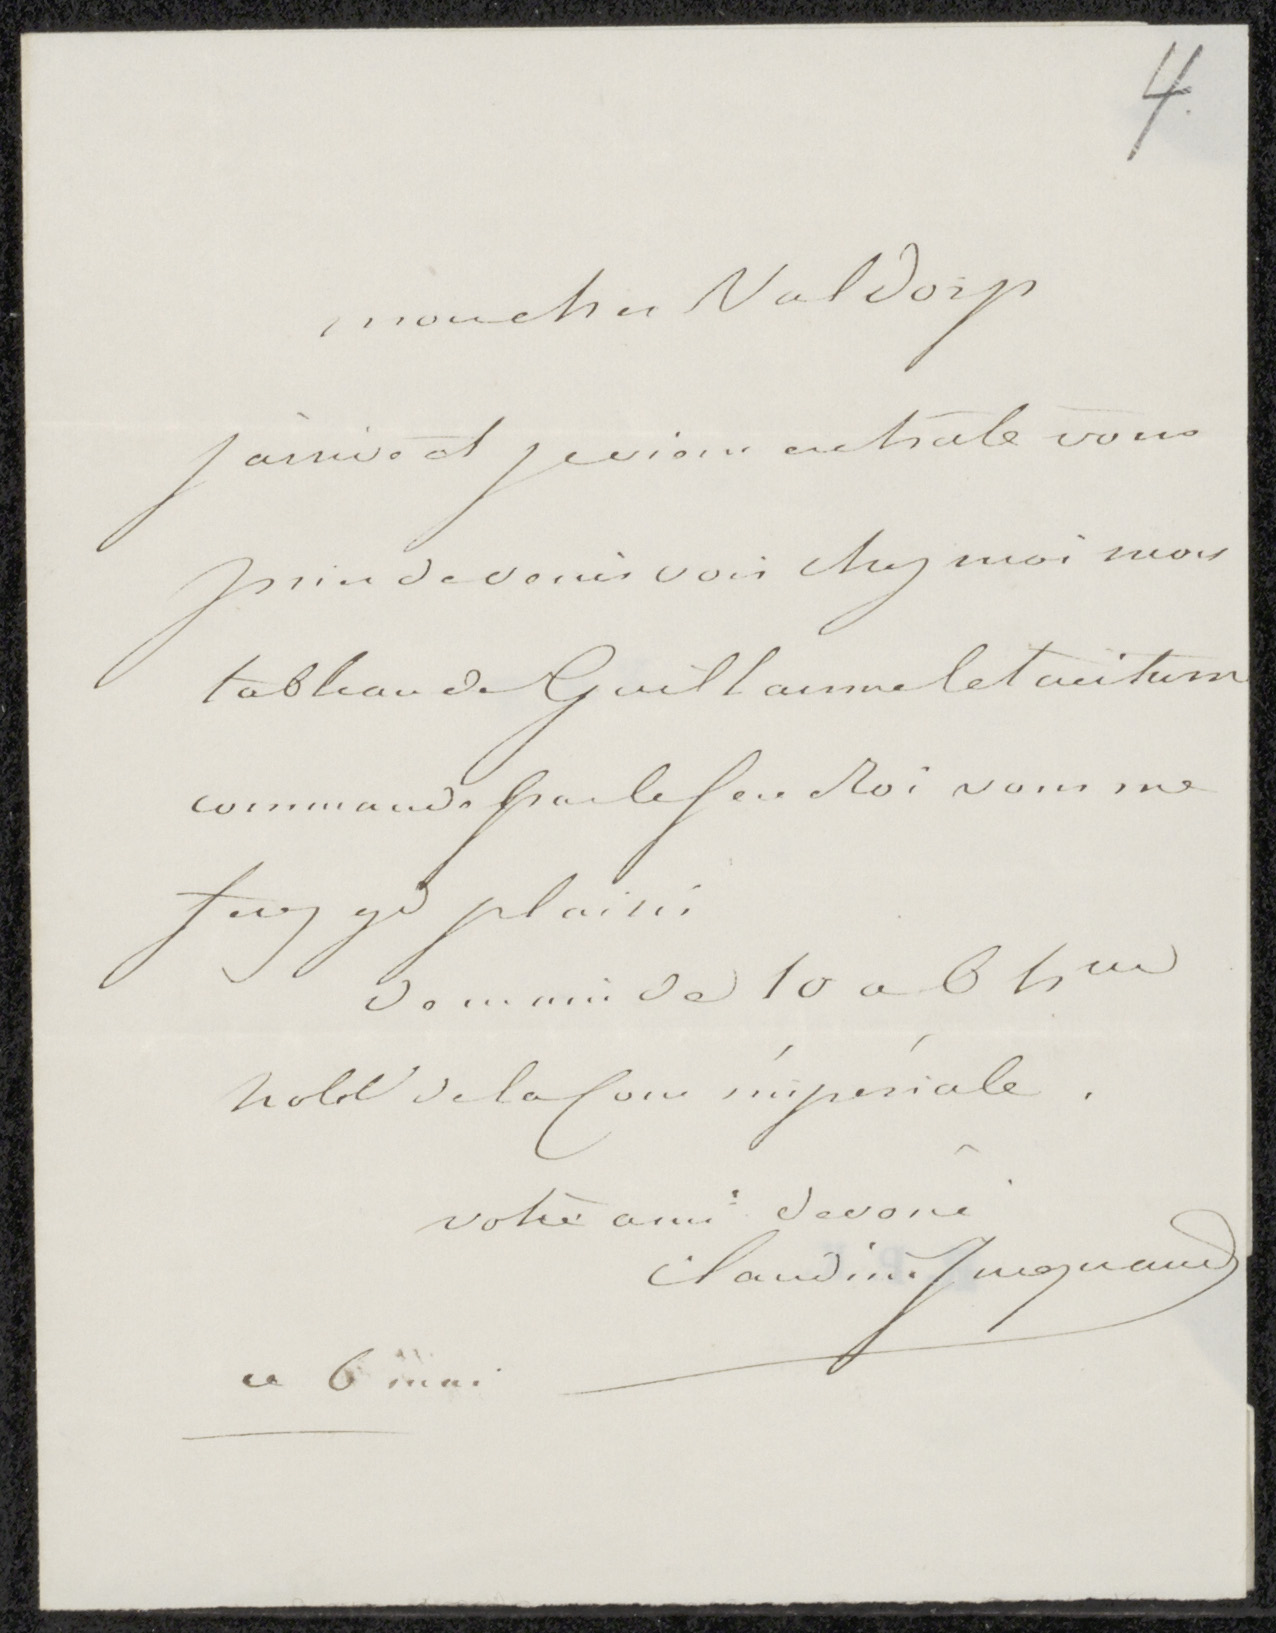 4.
mon cher Valdorp
j'arrive et je viens en hate vous
prier de venir voir chez moi mon
tableau de Guillaume le taciturn
commandé par le feu Roi vous me
ferez gd plaisir
demain de 10 a 6 hres
hotel de la Cour impériale.
votre ami devoué
Claudius Jacquand
ce 6 mai